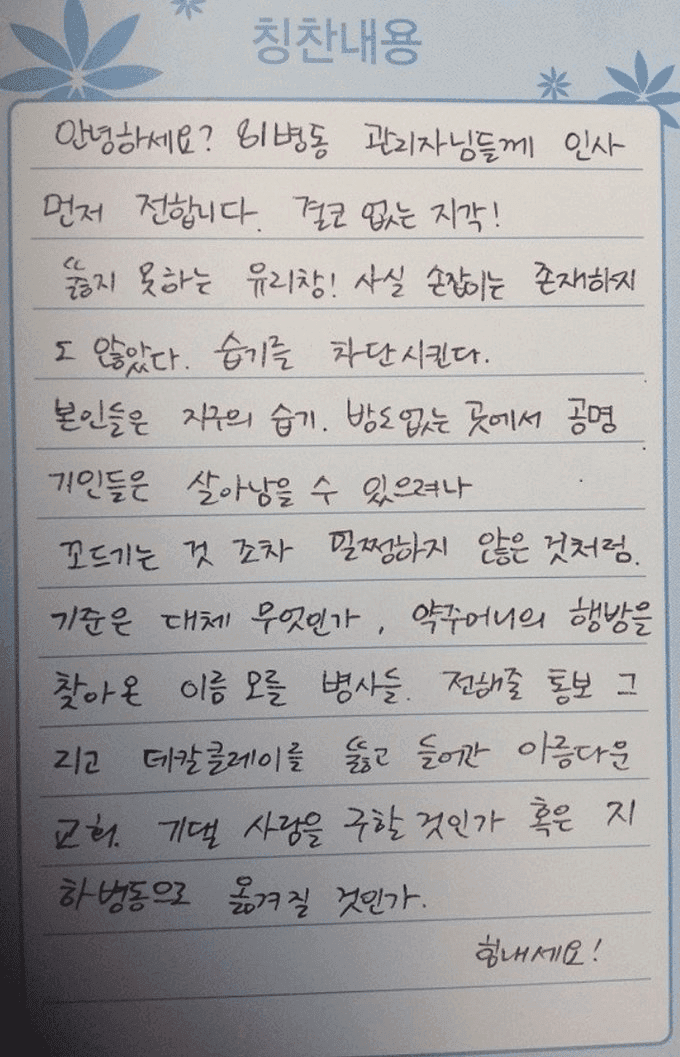 칭찬내용
안녕하세요? 81병동 관리자님들께 인사
먼저 전합니다. 결코 없는 지각!
뚫지 못하는 유리창! 사실 손잡이는 존재하지
도 않았다. 습기를 차단시킨다.
본인들은 지구의 습기. 방도없는 곳에서 공명
기인들은 살아남을 수 있으려나
꼬드기는 것 조차 멀쩡하지 않은 것처럼.
기준은 대체 무엇인가, 약주머니의 행방을
찾아온 이름 모를 병사들. 전해줄 통보 그
리고 데칼클레이를 뚫고 들어간 아름다운
교회. 기댈 사람을 구할 것인가 혹은 지
하병동으로 옮겨질 것인가.
힘내세요!